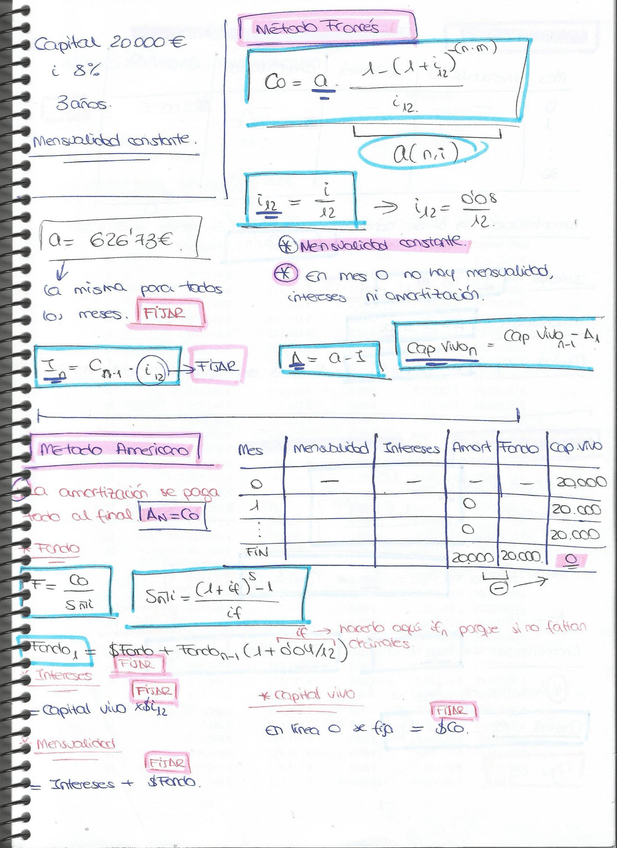 Capital 20.000 €
i 8%
3 años.
Mensualidad constante.
Método Francés
Co = a . 1 - (1 + i12)^-(n·m) / i12
a(n,i)
i12 = i / 12 → i12 = 0'08 / 12
* Mensualidad constante.
* En mes 0 no hay mensualidad,
intereses ni amortización.
a = 626'73 €
la misma para todos
los meses. FIJAR
In = Cn-1 · i12 → FIJAR
A = a - I
Cap Vivo n = Cap Vivo n-1 - A1
Método Americano
La amortización se paga
todo al final. AN = Co
* Fondo
Mes Mensualidad Intereses Amort Fondo Cap. vivo
0 — — — — 20.000
1 0 20.000
⋮ 0 20.000
FiN 20.000 20.000 0
- →
F = Co / Sn̅i
Sn̅i = (1 + if)^s - 1 / if
if → hacerlo aquí ifn porque si no faltan
Fondo1 = $Fondo + Fondo n-1 (1 + 0'04/12)
FIJAR
* Intereses
FIJAR
= Capital vivo x $i12
* Capital vivo
FIJAR
En línea 0 se fija = $Co.
* Mensualidad
FIJAR
= Intereses + $Fondo.